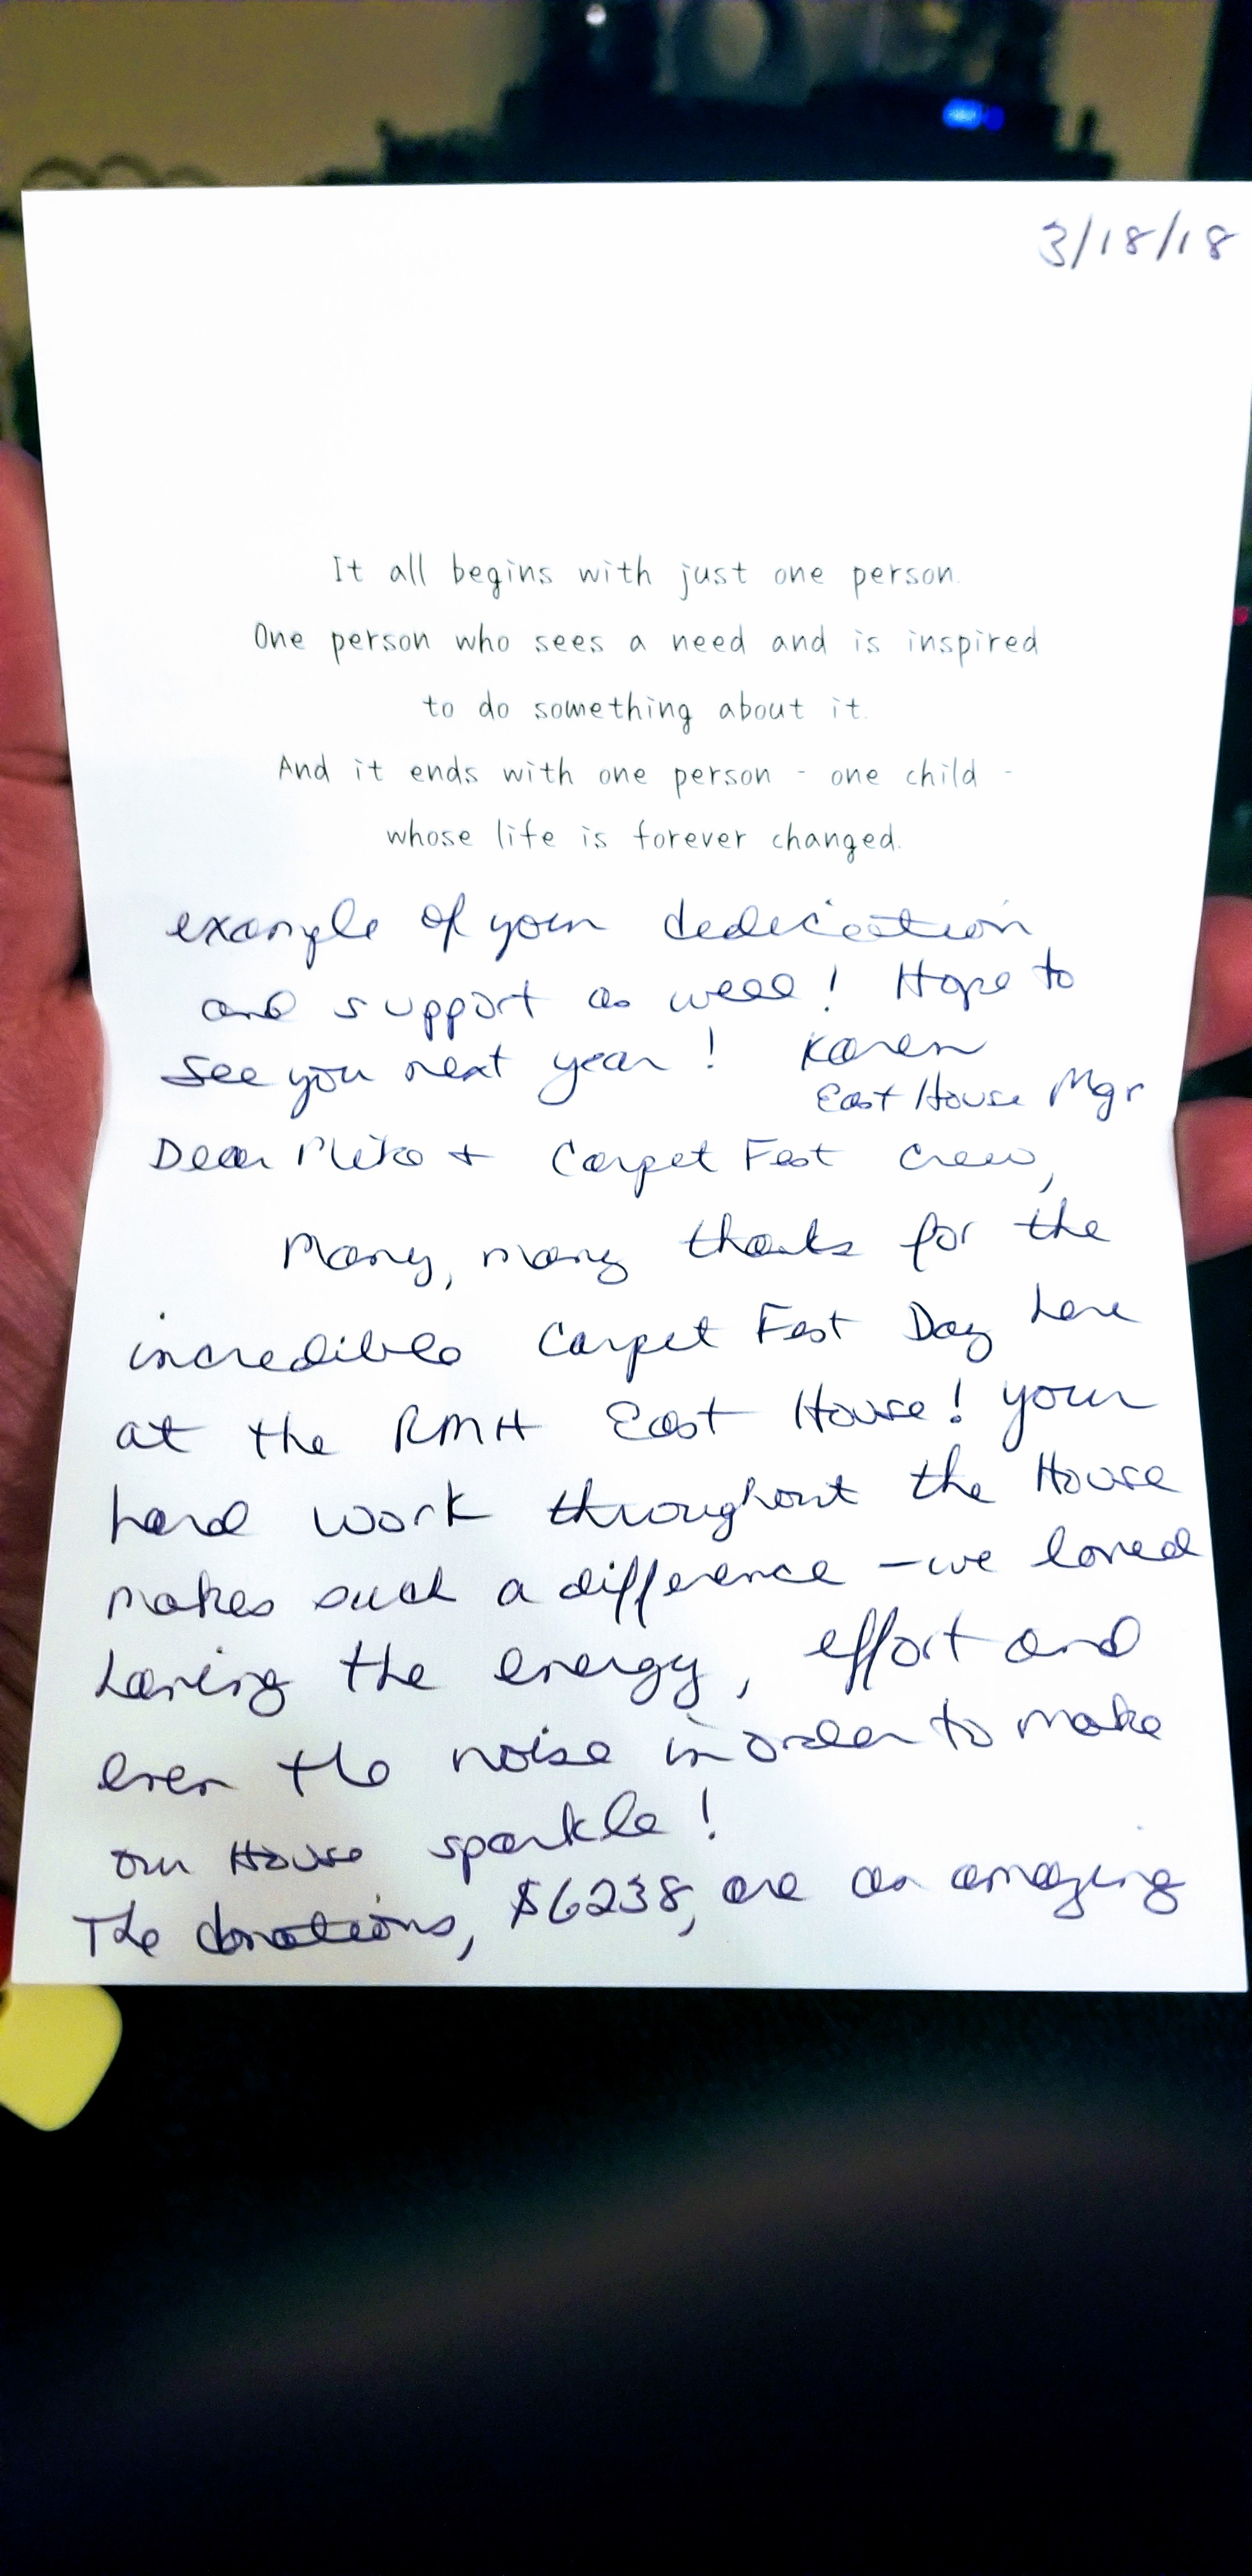 3/18/18
It all begins with just one person.
One person who sees a need and is inspired
to do something about it.
And it ends with one person - one child -
whose life is forever changed.
example of your dedication
and support as well! Hope to
see you next year! Karen
East House Mgr
Dear Mike + Carpet Fest Crew,
Many, many thanks for the
incredible Carpet Fest Day here
at the RMH East House! your
hard work throughout the House
makes such a difference - we loved
having the energy, effort and
even the noise in order to make
our House sparkle!
The donations, $6238, are an amazing